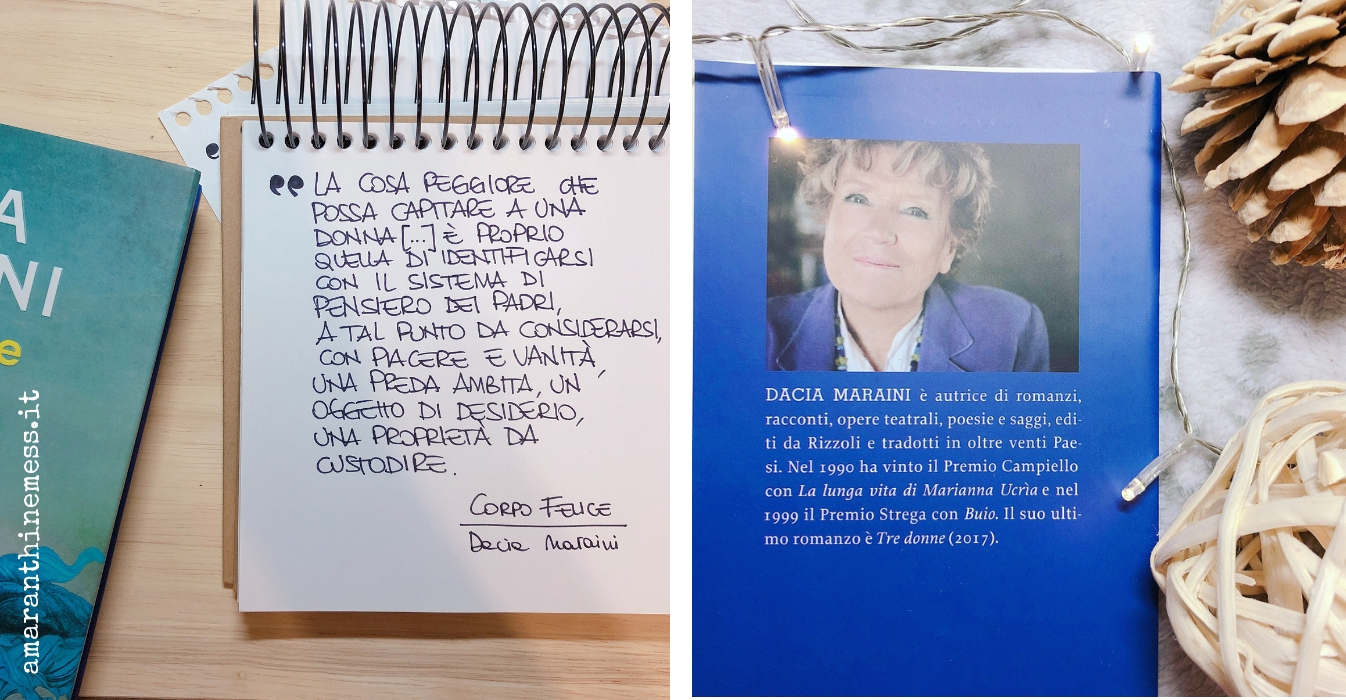 A
NI
e
amaranthinemess.it
❝ LA COSA PEGGIORE CHE
POSSA CAPITARE A UNA
DONNA [...] È PROPRIO
QUELLA DI IDENTIFICARSI
CON IL SISTEMA DI
PENSIERO DEI PADRI,
A TAL PUNTO DA CONSIDERARSI,
CON PIACERE E VANITÀ,
UNA PREDA AMBITA, UN
OGGETTO DI DESIDERIO,
UNA PROPRIETÀ DA
CUSTODIRE.
CORPO FELICE
Dacia Maraini
DACIA MARAINI è autrice di romanzi,
racconti, opere teatrali, poesie e saggi, edi-
ti da Rizzoli e tradotti in oltre venti Pae-
si. Nel 1990 ha vinto il Premio Campiello
con La lunga vita di Marianna Ucrìa e nel
1999 il Premio Strega con Buio. Il suo ulti-
mo romanzo è Tre donne (2017).